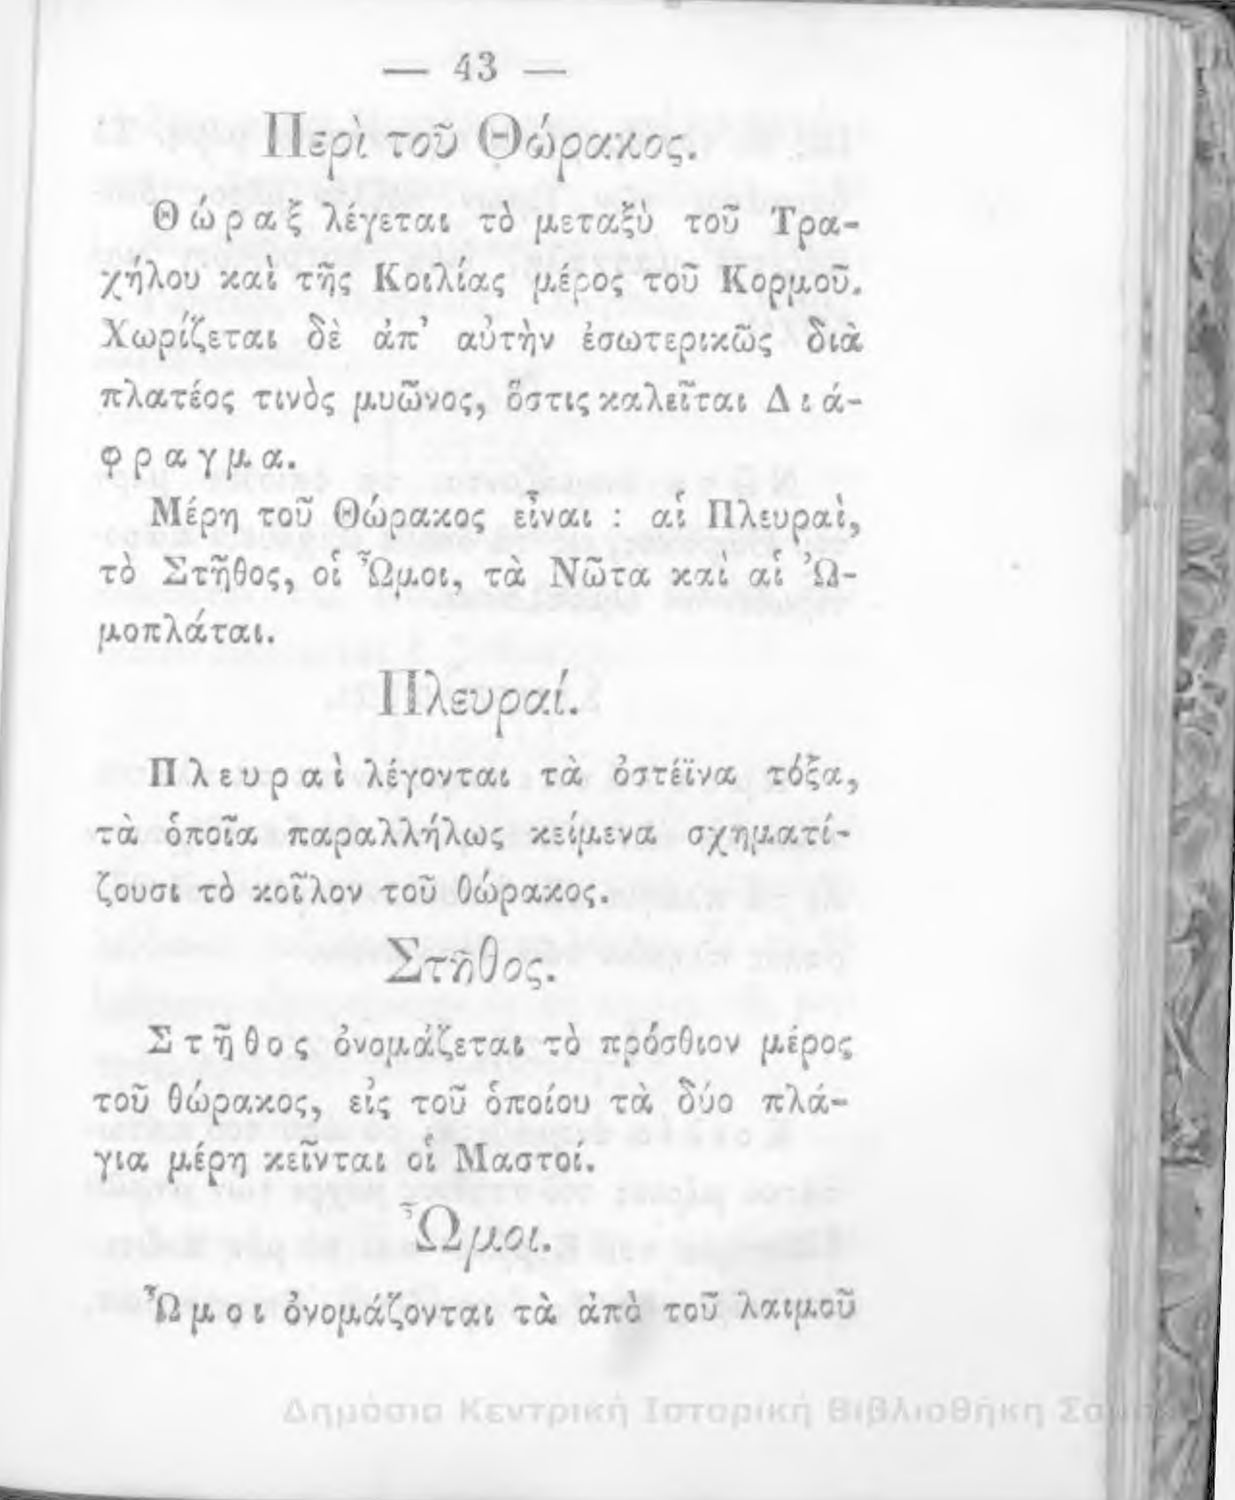 — 43 —
Περὶ τοῦ Θώρακος.
Θώραξ λέγεται τὸ μεταξὺ τοῦ Τρα-
χήλου καὶ τῆς Κοιλίας μέρος τοῦ Κορμοῦ.
Χωρίζεται δὲ ἀπ' αὐτὴν ἐσωτερικῶς διὰ
πλατέος τινὸς μυῶνος, ὅστις καλεῖται Διά-
φραγμα.
Μέρη τοῦ Θώρακος εἶναι : αἱ Πλευραὶ,
τὸ Στῆθος, οἱ Ὦμοι, τὰ Νῶτα καὶ αἱ Ὠ-
μοπλάται.
Πλευραί.
Πλευραὶ λέγονται τὰ ὀστέϊνα τόξα,
τὰ ὁποῖα παραλλήλως κείμενα σχηματί-
ζουσι τὸ κοῖλον τοῦ θώρακος.
Στῆθος.
Στῆθος ὀνομάζεται τὸ πρόσθιον μέρος
τοῦ θώρακος, εἰς τοῦ ὁποίου τὰ δύο πλά-
για μέρη κεῖνται οἱ Μαστοί.
Ὦμοι.
Ὦμοι ὀνομάζονται τὰ ἀπὸ τοῦ λαιμοῦ
Δημόσια Κεντρική Ιστορική Βιβλιοθήκη